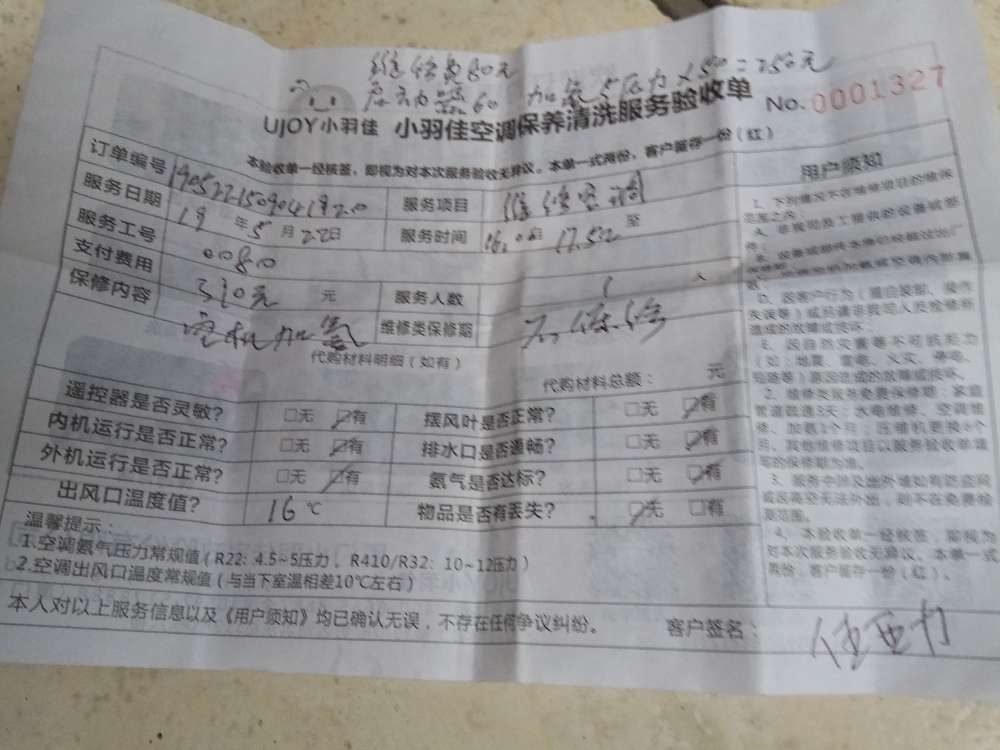 维修费80元
启动器60 加氨5压力×50=250元
UJOY小羽佳 小羽佳空调保养清洗服务验收单 No.0001327
本验收单一经核签，即视为对本次服务验收无异议。本单一式两份，客户留存一份（红）
订单编号 服务项目 维修空调
服务日期 19年5月22日 服务时间 至 17.52
服务工号 0080
支付费用 元 服务人数 1 人
保修内容 加氨 维修类保修期 不保修
代购材料明细（如有） 代购材料总额： 元
遥控器是否灵敏? □无 ☑有 摆风叶是否正常? □无 ☑有
内机运行是否正常? □无 ☑有 排水口是否通畅? □无 ☑有
外机运行是否正常? □无 ☑有 氨气是否达标? □无 ☑有
出风口温度值? 16℃ 物品是否有丢失? ☑无 □有
温馨提示：
1.空调氨气压力常规值（R22：4.5~5压力，R410/R32：10~12压力）
2.空调出风口温度常规值（与当下室温相差10℃左右）
本人对以上服务信息以及《用户须知》均已确认无误，不存在任何争议纠纷。 客户签名：
用户须知
1、下列情况不在维修项目的维保
范围之内：
A、非我司员工提供的设备或部
件；
D、因客户行为（擅自装卸、操作
失误等）或后请非我司人员检修所
造成的故障或损坏；
E、因自然灾害等不可抗拒力
（如：地震、雷电、火灾、停电、
短路等）原因造成的故障或损坏。
2、维修类服务免费保修期：家庭
管道疏通3天；水电维修、空调维
修、加氨1个月；压缩机更换6个
月，其他维修项目以服务验收单填
写的保修期为准。
3、服务中涉及出外墙如有防盗网
或因高空无法外出，则不在免费检
测范围。
4、本验收单一经核签，即视为
对本次服务验收无异议。本单一式
两份，客户留存一份（红）。